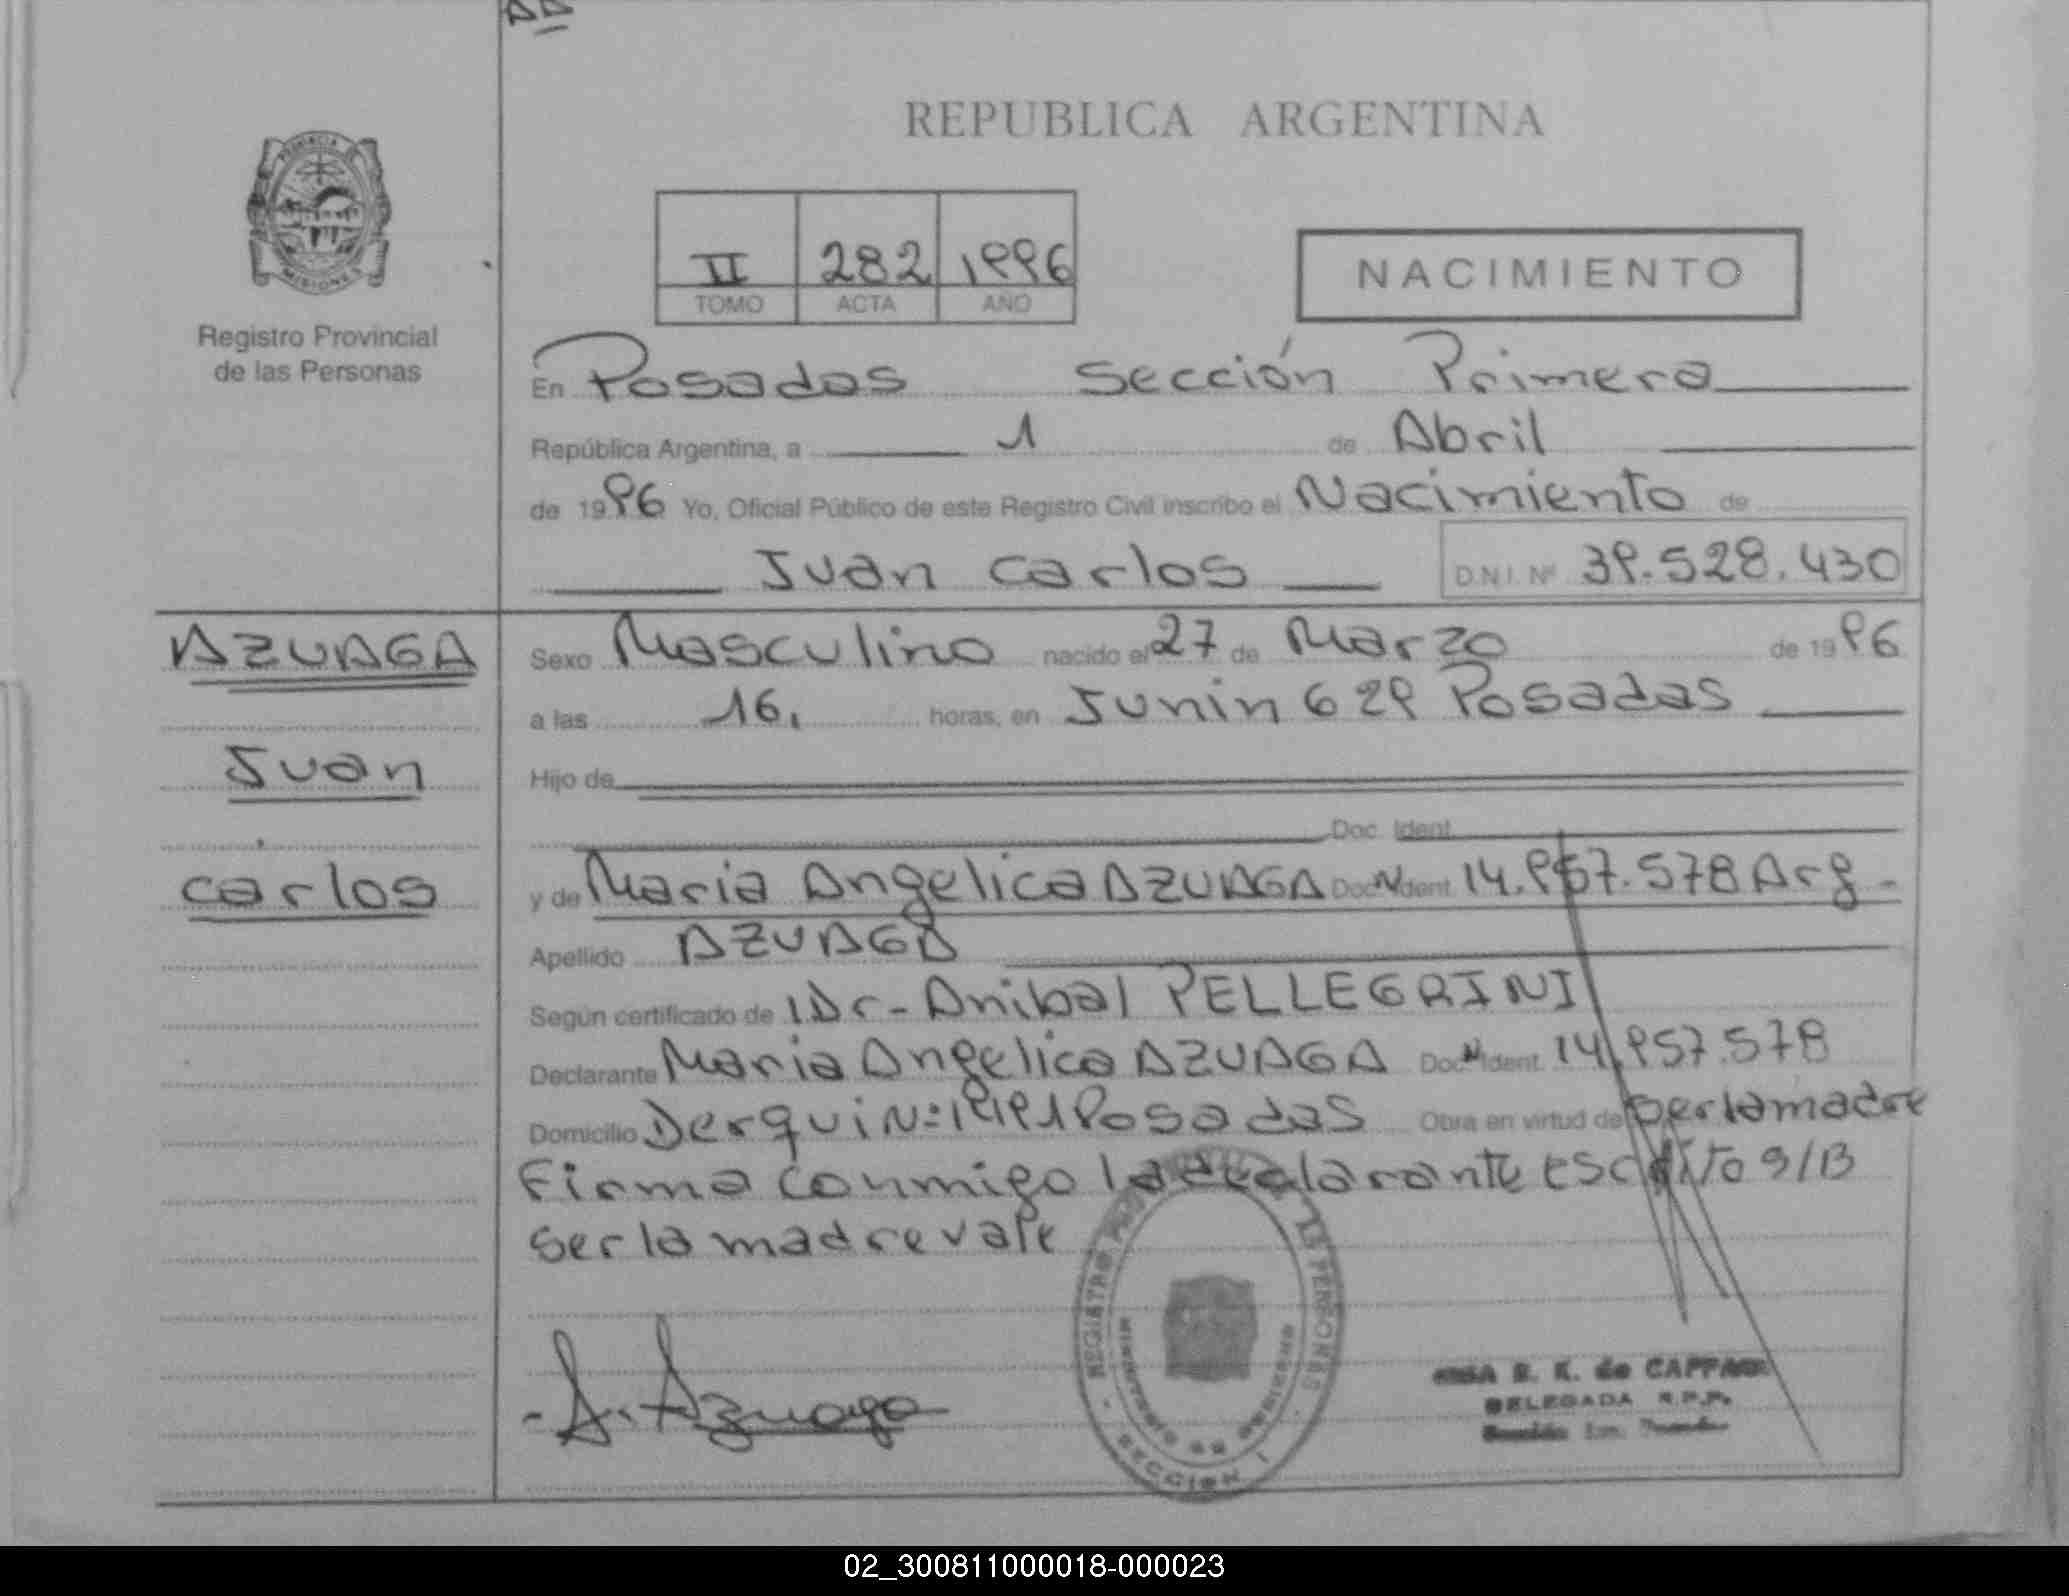 REPUBLICA ARGENTINA
PROVINCIA DE
MISIONES
Registro Provincial
de las Personas
II 282 1996
TOMO ACTA AÑO
NACIMIENTO
En Posadas Sección Primera
República Argentina, a 1 de Abril
de 1996 Yo, Oficial Público de este Registro Civil inscribo el Nacimiento de
Juan Carlos D.N.I. Nº 39.528.430
AZUAGA
Juan
Carlos
Sexo Masculino nacido el 27 de Marzo de 1996
a las 16, horas, en Junin 629 Posadas
Hijo de
Doc. Ident.
y de Maria Angelica AZUAGA Doc. Ident. 14.957.578 Arg.
Apellido AZUAGA
Según certificado de Dr. Anibal PELLEGRINI
Declarante Maria Angelica AZUAGA Doc. Ident. 14.957.578
Domicilio Derqui N: Posadas Obra en virtud de ser la madre
Firma conmigo la declarante escrito s/B
ser la madre vale
A. Azuaga
REGISTRO LAS PERSONAS
MINISTERIO DE GOBIERNO
SECCION 1
B. K. de
DELEGADA R.P.P.
02_300811000018-000023